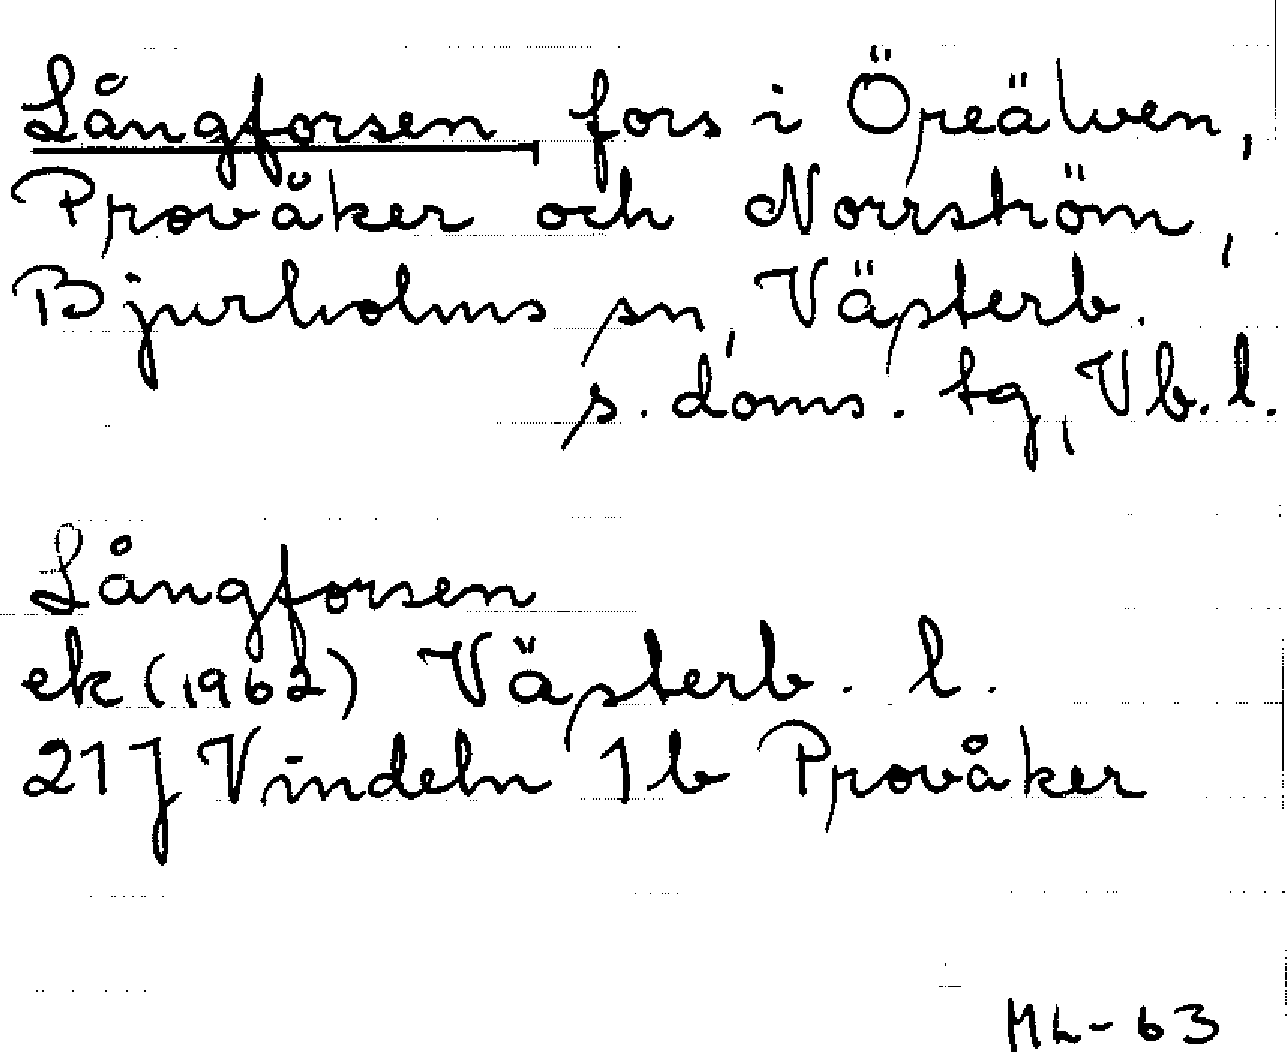 Långforsen fors i Öreälven,
Provåker och Norrström,
Bjurholms sn, Västerb.
s. doms. tg, Vb. l.
Långforsen
ek (1962) Västerb. l.
21J Vindeln 1b Provåker
ML-63